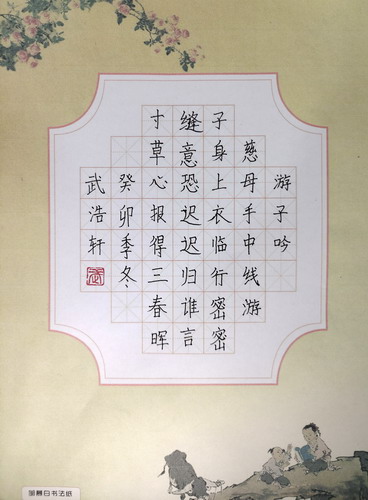 游子吟
慈母手中线游
子身上衣临行密密
缝意恐迟迟归谁言
寸草心报得三春晖
癸卯季冬
武浩轩
武
邹慕白书法纸